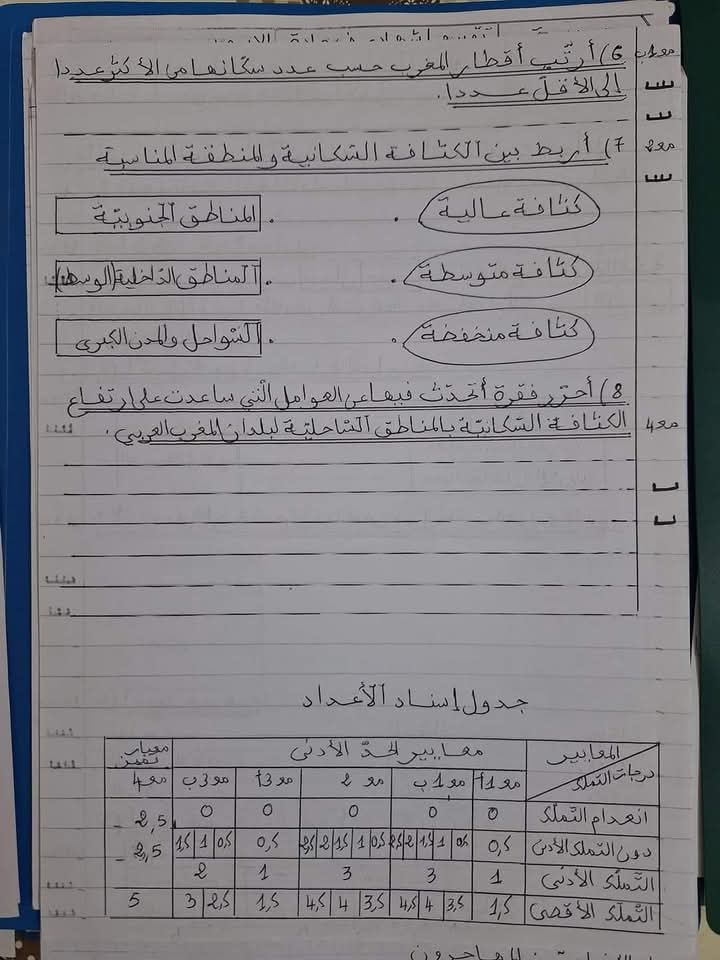 مع1ب 6) أرتّب أقطار المغرب حسب عدد سكّانها من الأكثر عددا
إلى الأقلّ عددا.
مع2 7) أربط بين الكثافة السّكانية والمنطقة المناسبة
كثافة عالية . . المناطق الجنوبيّة
كثافة متوسطة . . المناطق الدّاخلية (الوسط)
كثافة منخفضة . . السّواحل والمدن الكبرى
8) أحرّر فقرة أتحدّث فيها عن العوامل الّتي ساعدت على ارتفاع
مع4 الكثافة السّكانيّة بالمناطق السّاحليّة لبلدان المغرب العربي.
جدول إسناد الأعداد
المعايير معايير الحدّ الأدنى معيار تميّز
درجات التملك مع1أ مع1ب مع2 مع3أ مع3ب مع4
انعدام التّملك 0 0 0 0 0
دون التملك الأدنى 0,5 0,5 1 1,5 2 2,5 0,5 1 1,5 2 2,5 0,5 0,5 1 1,5 2,5
التّملك الأدنى 1 3 3 1 2
التّملك الأقصى 1,5 3,5 4 4,5 3,5 4 4,5 1,5 2,5 3 5